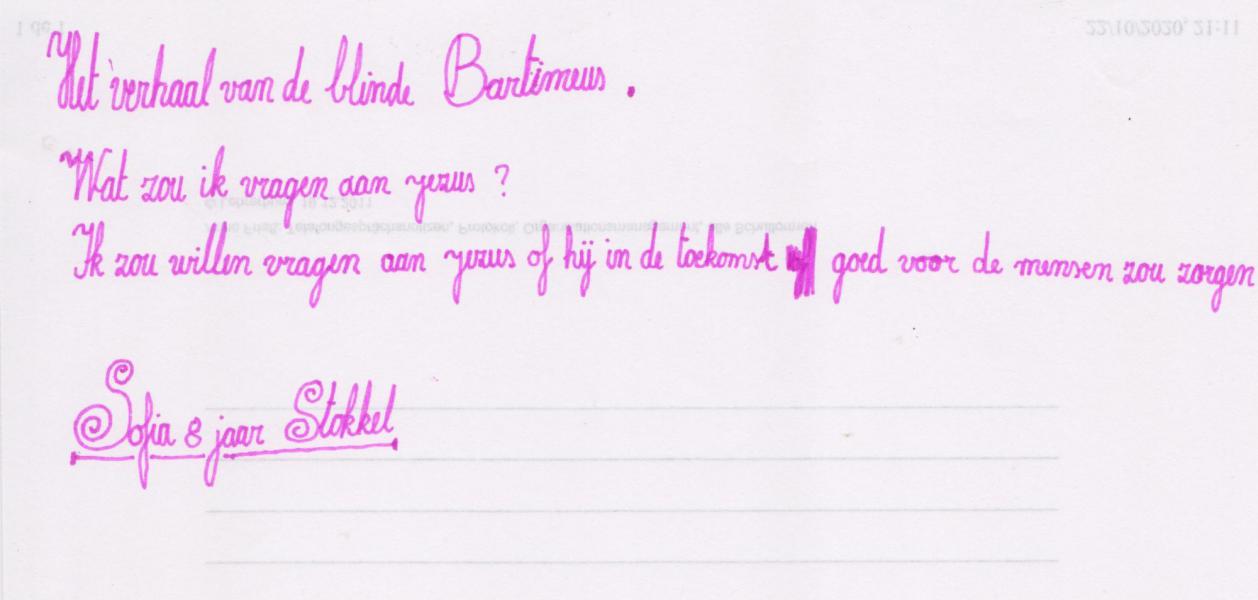 Het verhaal van de blinde Bartimeus.
Wat zou ik vragen aan yezus?
Ik zou willen vragen aan yezus of hij in de toekomst goed voor de mensen zou zorgen
Sofia 8 jaar Stokkel